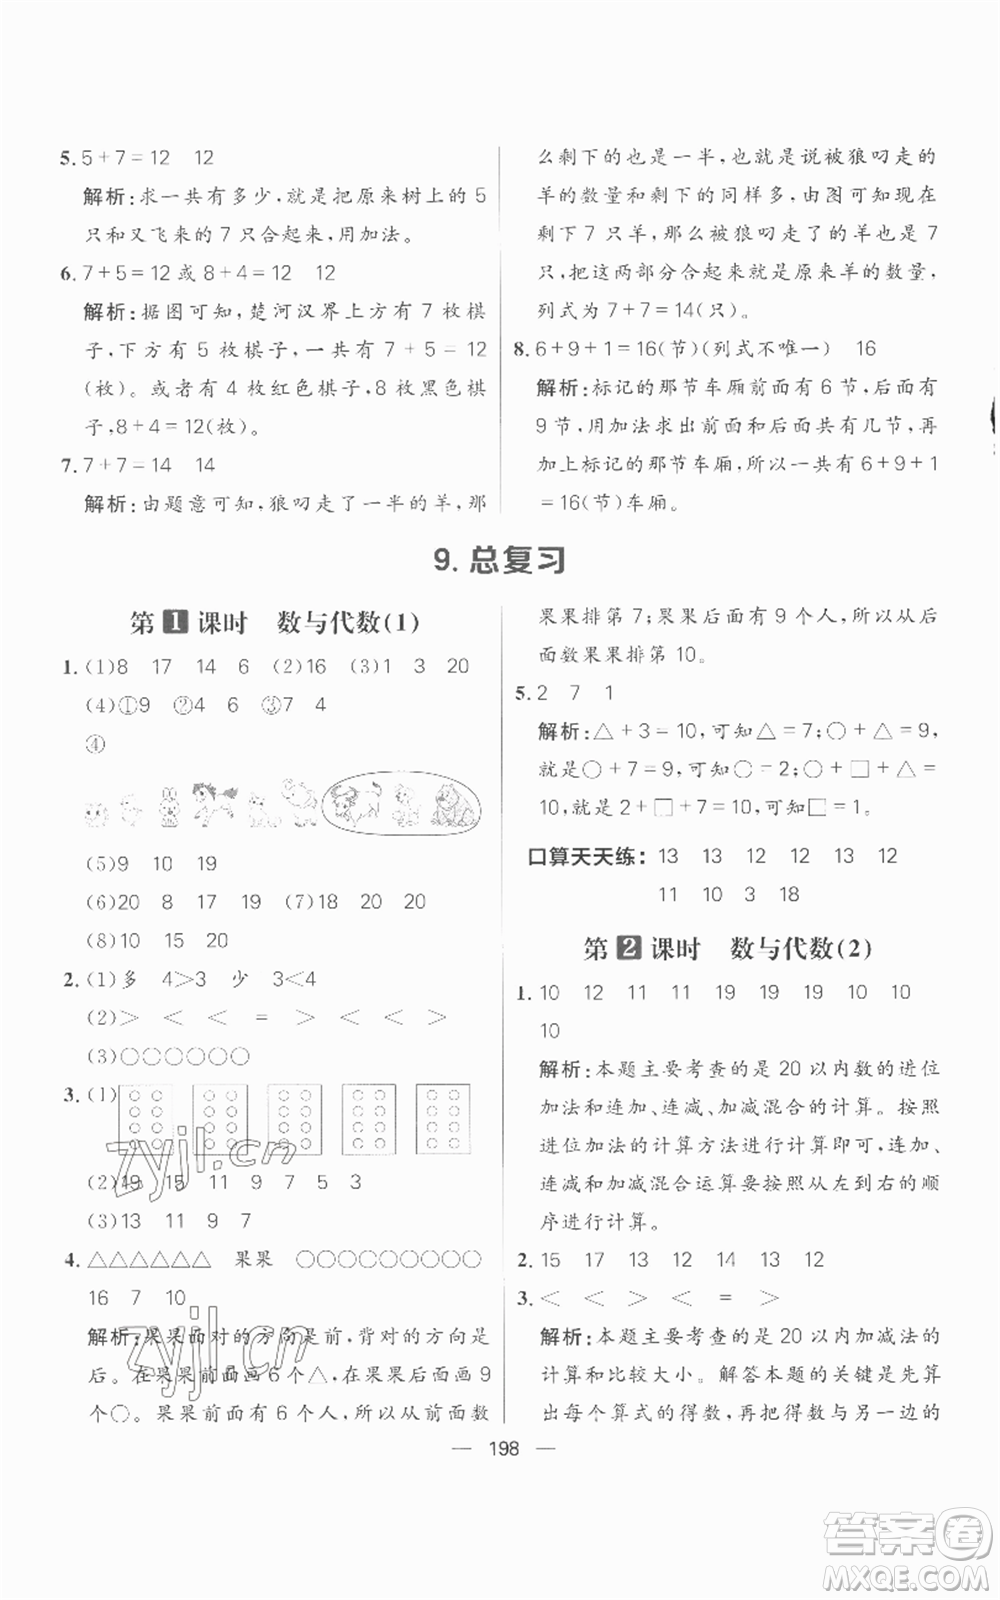 5. 5+7=12 12
解析:求一共有多少,就是把原来树上的 5
只和又飞来的 7 只合起来,用加法。
6. 7+5=12 或 8+4=12 12
解析:据图可知,楚河汉界上方有 7 枚棋
子,下方有 5 枚棋子,一共有 7+5=12
(枚)。或者有 4 枚红色棋子,8 枚黑色棋
子,8+4=12(枚)。
7. 7+7=14 14
解析:由题意可知,狼叼走了一半的羊,那
么剩下的也是一半,也就是说被狼叼走的
羊的数量和剩下的同样多,由图可知还
剩下 7 只羊,那么被狼叼走了的羊也是 7
只,把这两部分合起来就是原来羊的数量,
列式为 7+7=14(只)。
8. 6+9+1=16(节)(列式不唯一) 16
解析:标记的那节车厢前面有 6 节,后面有
9 节,用加法求出前面和后面共有几节,再
加上标记的那节车厢,所以一共有 6+9+1
=16(节)车厢。
9. 总复习
第1课时 数与代数(1)
1. (1)8 17 14 6 (2)16 (3)1 3 20
(4)①9 ②4 6 ③7 4
④
(5)9 10 19
(6)20 8 17 19 (7)18 20 20
(8)10 15 20
2. (1)多 4>3 少 3<4
(2)> < < = > < < >
(3)○○○○○○
3. (1)
(2)19 15 11 9 7 5 3
(3)13 11 9 7
4. △△△△△△ 果果 ○○○○○○○○○
16 7 10
解析:果果面对的方向是前,背对的方向是
后。在果果前面画 6 个△,在果果后面画 9
个○。果果前面有 6 个人,所以从前面数
果果排第 7;果果后面有 9 个人,所以从后
面数果果排第 10。
5. 2 7 1
解析:△+3=10,可知△=7;○+△=9,
就是○+7=9,可知○=2;○+□+△=
10,就是 2+□+7=10,可知□=1。
口算天天练: 13 13 12 12 13 12
11 10 3 18
第2课时 数与代数(2)
1. 10 12 11 11 19 19 19 10 10
10
解析:本题主要考查的是 20 以内数的进位
加法和连加、连减、加减混合的计算。按照
进位加法的计算方法进行计算即可,连加、
连减和加减混合运算要按照从左到右的顺
序进行计算。
2. 15 17 13 12 14 13 12
3. < < > < = >
解析:本题主要考查的是 20 以内加减法的
计算和比较大小。解答本题的关键是先算
出每个算式的得数,再把得数与另一边的
— 198 —
zyjl.cn
zyjl.cn
答案卷
MXQE.COM